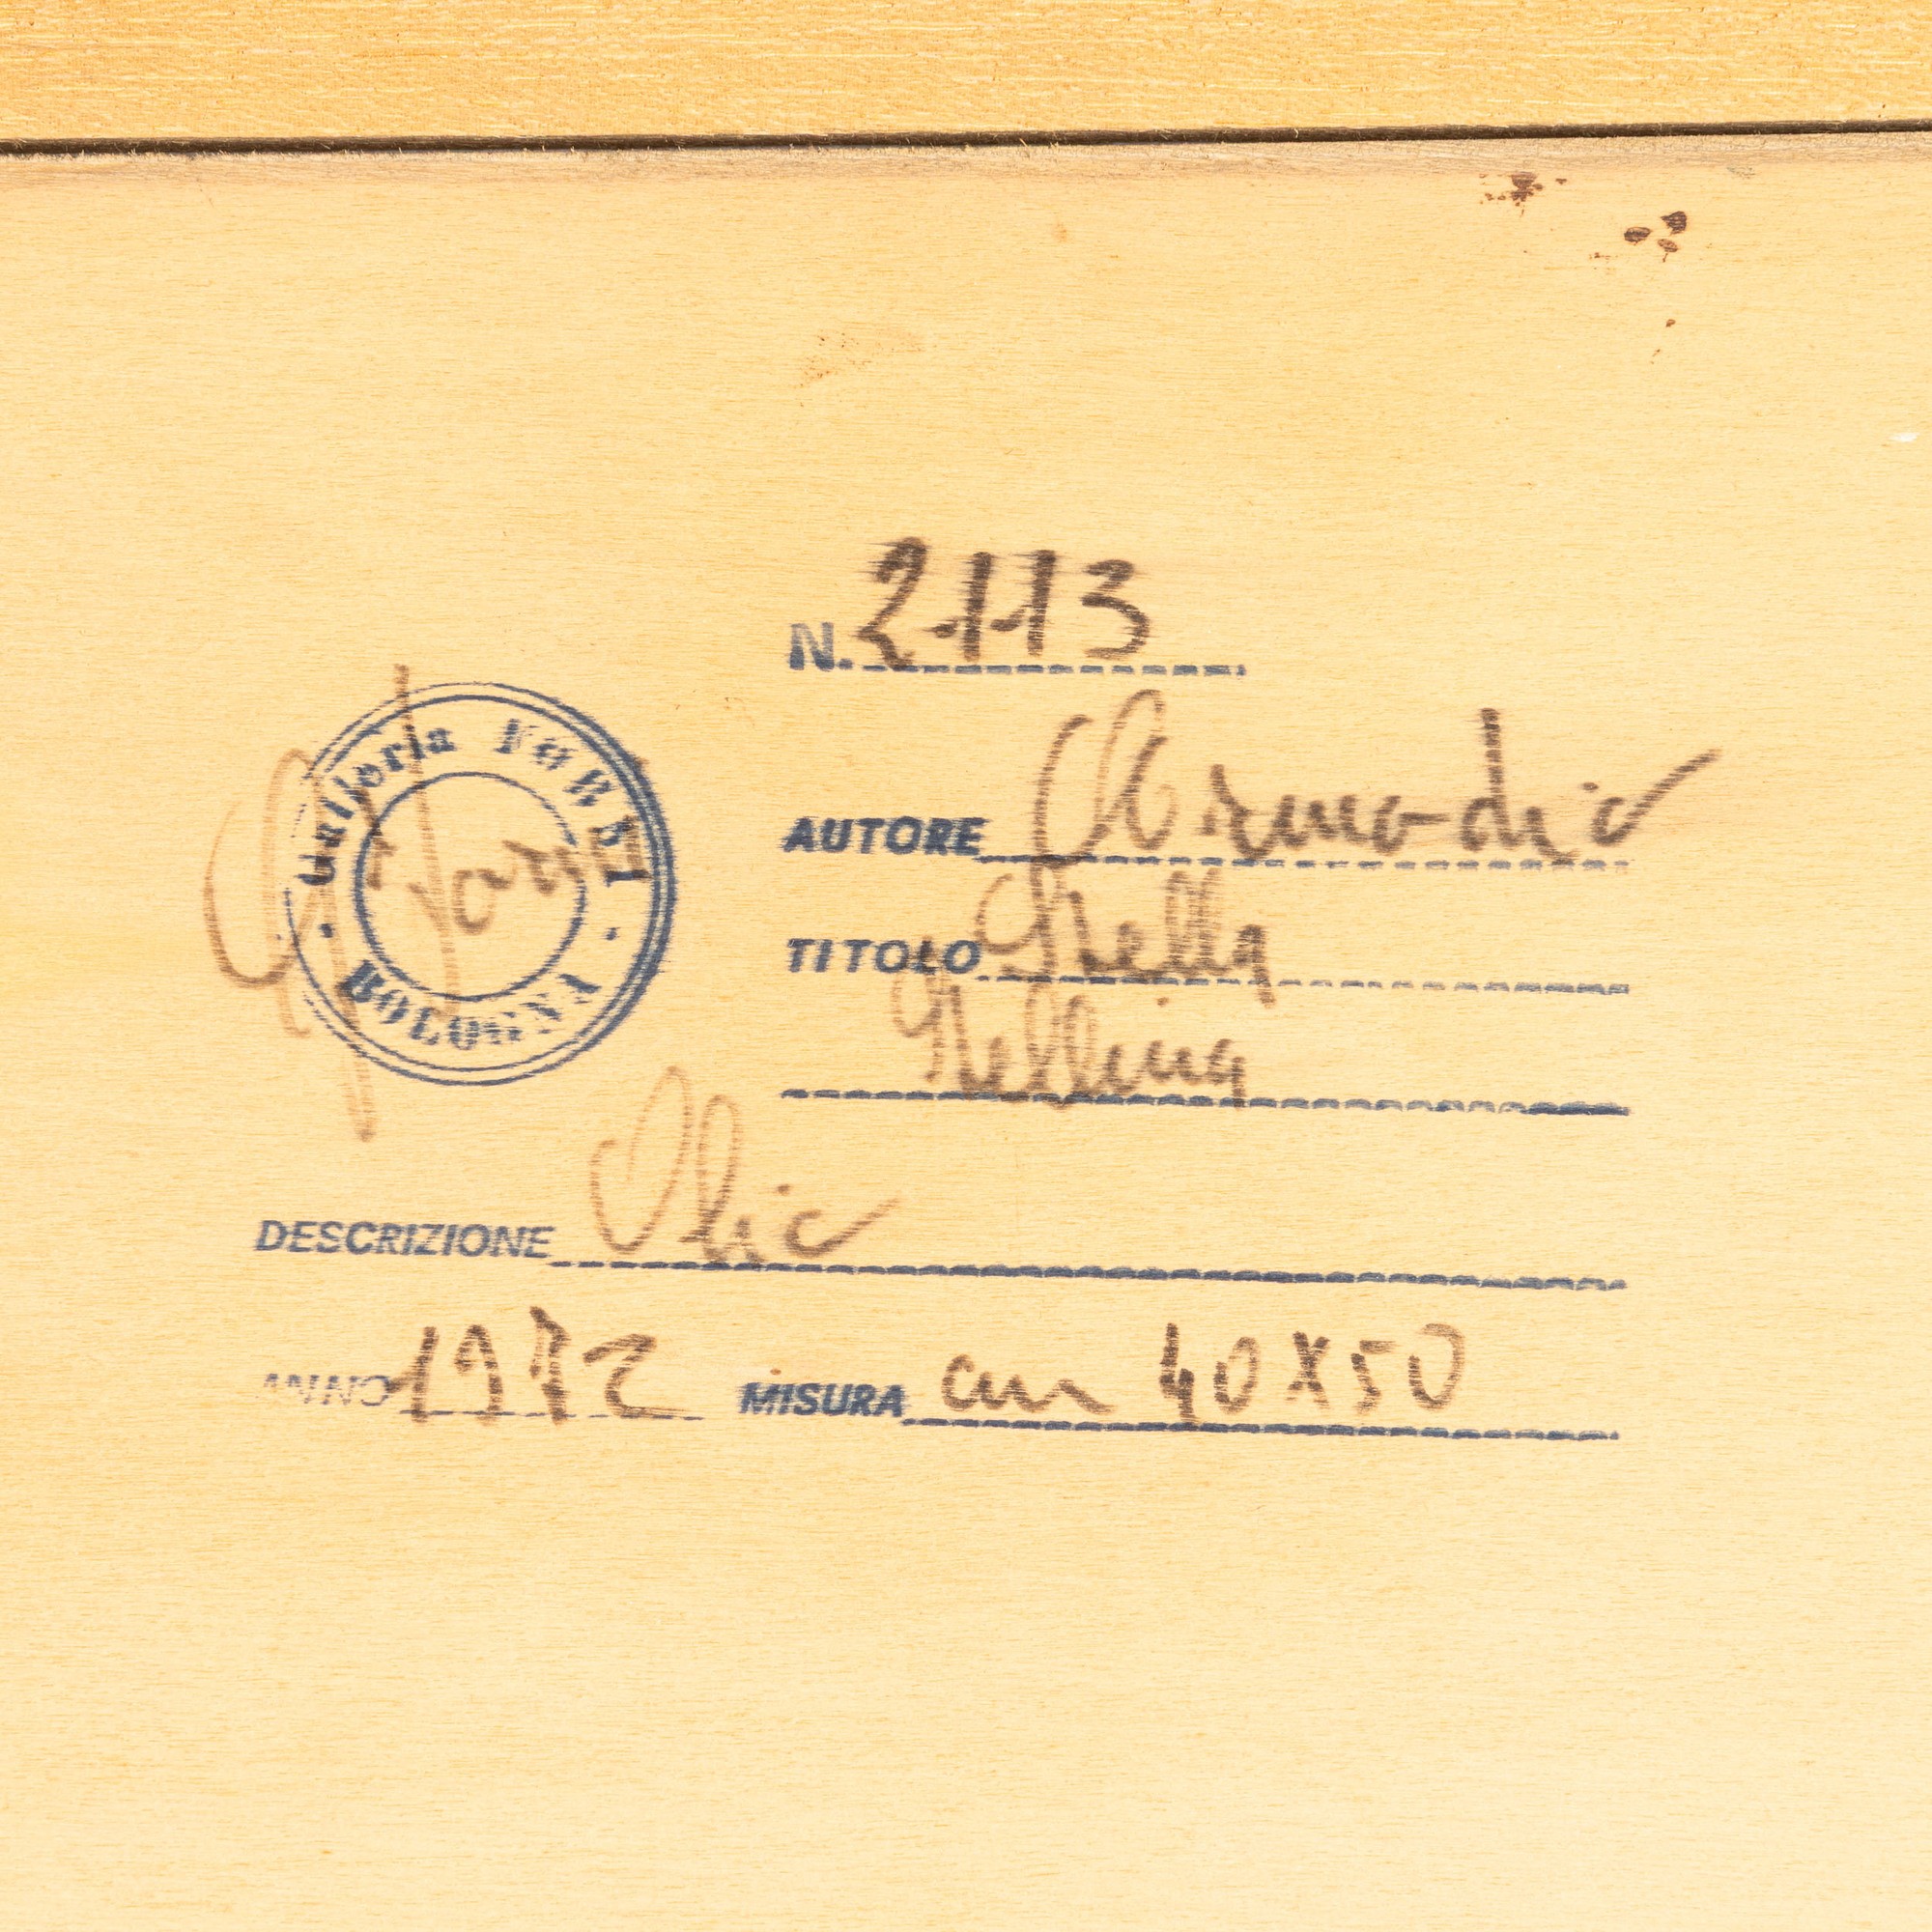 N. 2113
Galleria FORNI
BOLOGNA
AUTORE Armodio
TITOLO Stella
Stellina
DESCRIZIONE Olio
ANNO 1972 MISURA cm 40X50